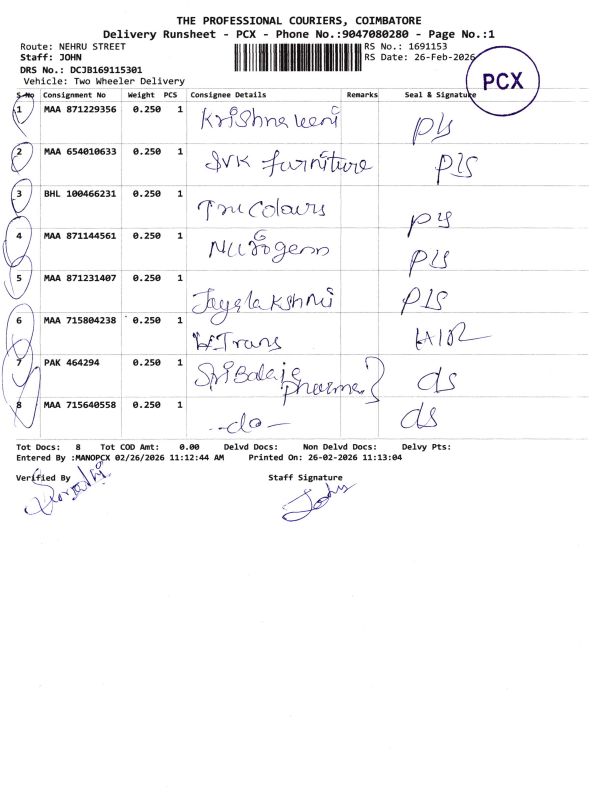 THE PROFESSIONAL COURIERS, COIMBATORE
Delivery Runsheet - PCX - Phone No.:9047080280 - Page No.:1
Route: NEHRU STREET
RS No.: 1691153
Staff: JOHN
RS Date: 26-Feb-2026
DRS No.: DCJB169115301
Vehicle: Two Wheeler Delivery
PCX
S-No Consignment No Weight PCS Consignee Details Remarks Seal & Signature
1 MAA 871229356 0.250 1 Krishnaveni
2 MAA 654010633 0.250 1 SVK furniture
3 BHL 100466231 0.250 1 Tru Colours
4 MAA 871144561 0.250 1
5 MAA 871231407 0.250 1 Jayalakshmi
6 MAA 715804238 0.250 1 Trans
7 PAK 464294 0.250 1 Sri Balaji pharma ds
8 MAA 715640558 0.250 1 -do- ds
Tot Docs: 8 Tot COD Amt: 0.00 Delvd Docs: Non Delvd Docs: Delvy Pts:
Entered By :MANOPCX 02/26/2026 11:12:44 AM Printed On: 26-02-2026 11:13:04
Verified By Staff Signature
John